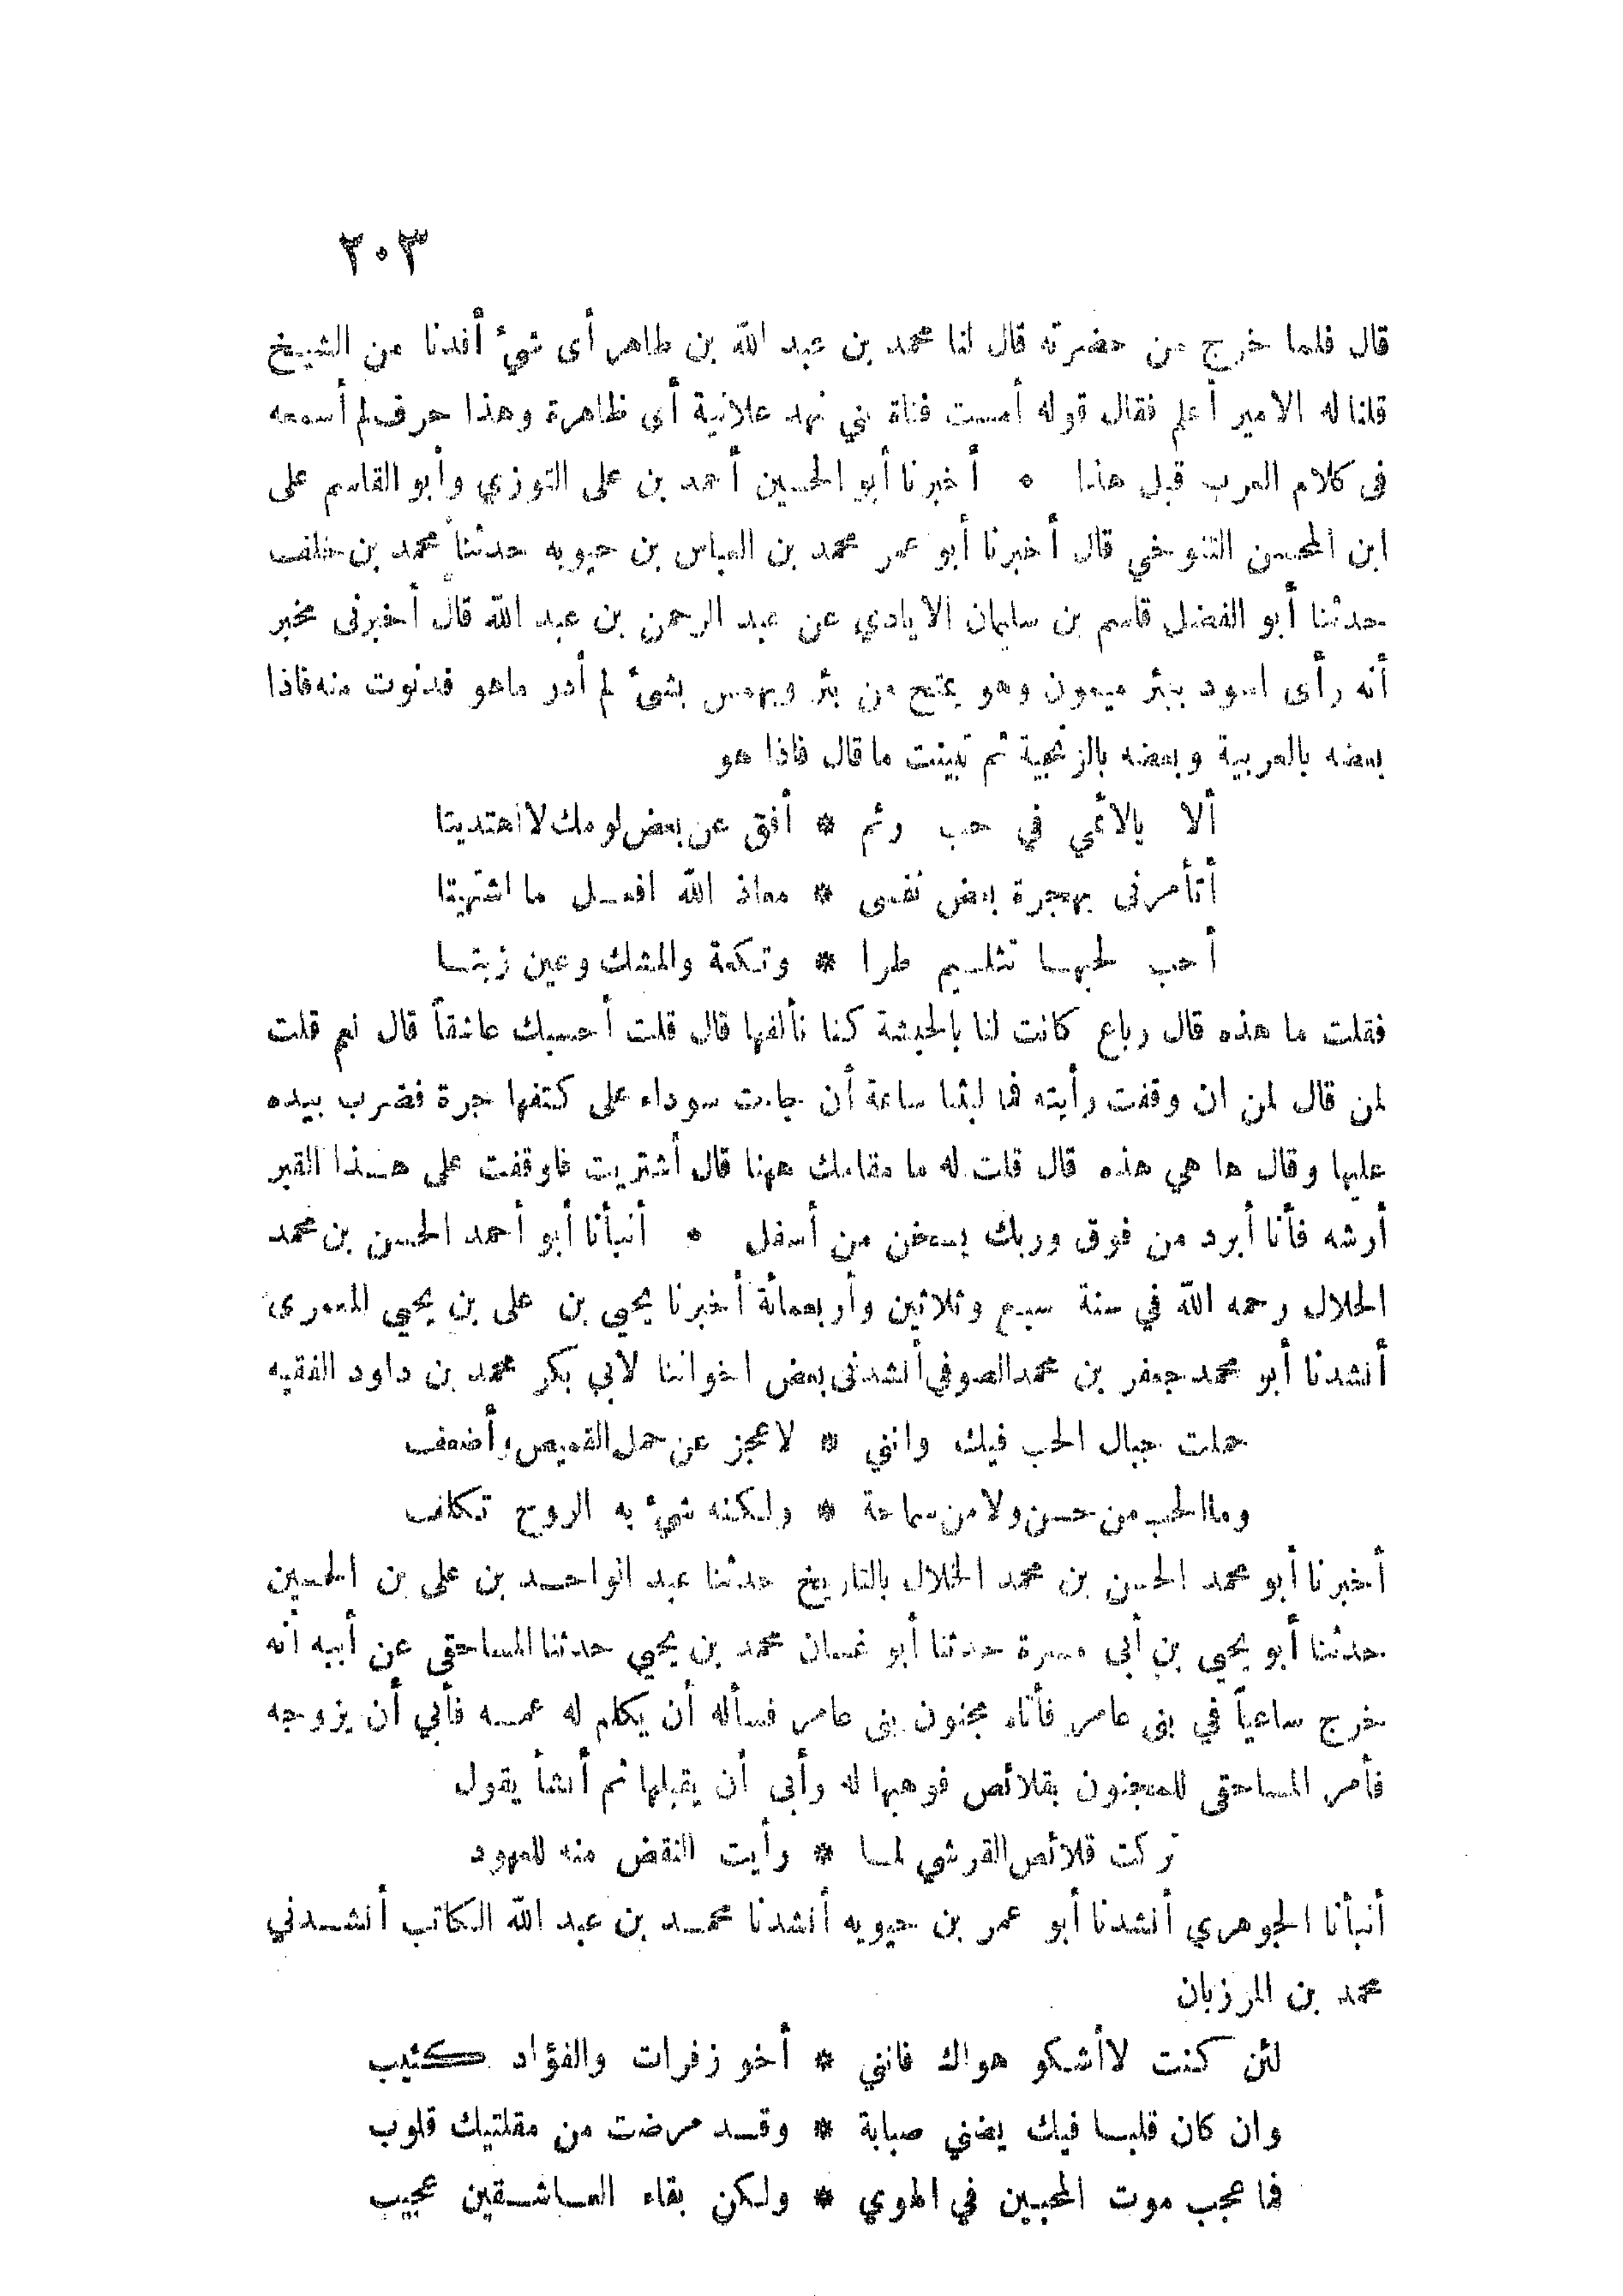 ٢٠٣
قال فلما خرج من حضرته قال لنا محمد بن عبد الله بن طاهر أى شئ أفدنا من الشيخ
قلنا له الامير أعلم فقال قوله أمست فتاة بني نهد علانية أى ظاهرة وهذا حرف لم أسمعه
فى كلام العرب قبل هذا • أخبرنا أبو الحسين أحمد بن على التوزي وأبو القاسم على
ابن المحسن التنوخي قال أخبرنا أبو عمر محمد بن العباس بن حيويه حدثنا محمد بن خلف
حدثنا أبو الفضل قاسم بن سليمان الايادي عن عبد الرحمن بن عبد الله قال أخبرنى مخبر
أنه رأى اسود ببئر ميمون وهو يمتح من بئر ويهمس بشئ لم أدر ماهو فدنوت منه فاذا
بعضه بالعربية وبعضه بالزنجية ثم تبينت ما قال فاذا هو
ألا يالائمي في حب رئم * أفق عن بعض لومك لا اهتديتا
أتأمرنى بهجرة بعض نفسى * معاذ الله افعل ما اشتهيتا
أحب لحبها تثليم طرا * وتكمة والمشك وعين زيتا
فقلت ما هذه قال رباع كانت لنا بالحبشة كنا نألفها قال قلت أحسبك عاشقاً قال نعم قلت
لمن قال لمن ان وقفت رأيته فما لبثنا ساعة أن جاءت سوداء على كتفها جرة فضرب بيده
عليها وقال ها هي هذه قال قلت له ما مقامك ههنا قال أشتريت فاوقفت على هذا القبر
أرشه فأنا أبرد من فوق وربك يسخن من أسفل • أنبأنا أبو أحمد الحسن بن محمد
الخلال رحمه الله في سنة سبع وثلاثين وأربعمائة أخبرنا يحيي بن على بن يحيي المعمرى
أنشدنا أبو محمد جعفر بن محمد الصوفي أنشدنى بعض اخواننا لابي بكر محمد بن داود الفقيه
حملت جبال الحب فيك وانني * لاعجز عن حمل القميص وأضعف
وما الحب من حسن ولا من سماحة * ولكنه شئ به الروح تكلف
أخبرنا أبو محمد الحسن بن محمد الخلال بالتاريخ حدثنا عبد الواحد بن على بن الحسين
حدثنا أبو يحيي بن أبى مسرة حدثنا أبو غسان محمد بن يحيي حدثنا المساحقى عن أبيه أنه
خرج ساعياً في بنى عامر فأتاه مجنون بنى عامر فسأله أن يكلم له عمه فأبي أن يزوجه
فأمر المساحقى للمجنون بقلائص فوهبها له وأبى أن يقبلها ثم أنشأ يقول
تركت قلائص القرشي لما * رأيت النقض منه للعهود
أنبأنا الجوهري أنشدنا أبو عمر بن حيويه أنشدنا محمد بن عبد الله الكاتب أنشدني
محمد بن المرزبان
لئن كنت لاأشكو هواك فانني * أخو زفرات والفؤاد كئيب
وان كان قلبا فيك يضني صبابة * وقد مرضت من مقلتيك قلوب
فما عجب موت المحبين في الهوي * ولكن بقاء العاشقين عجيب